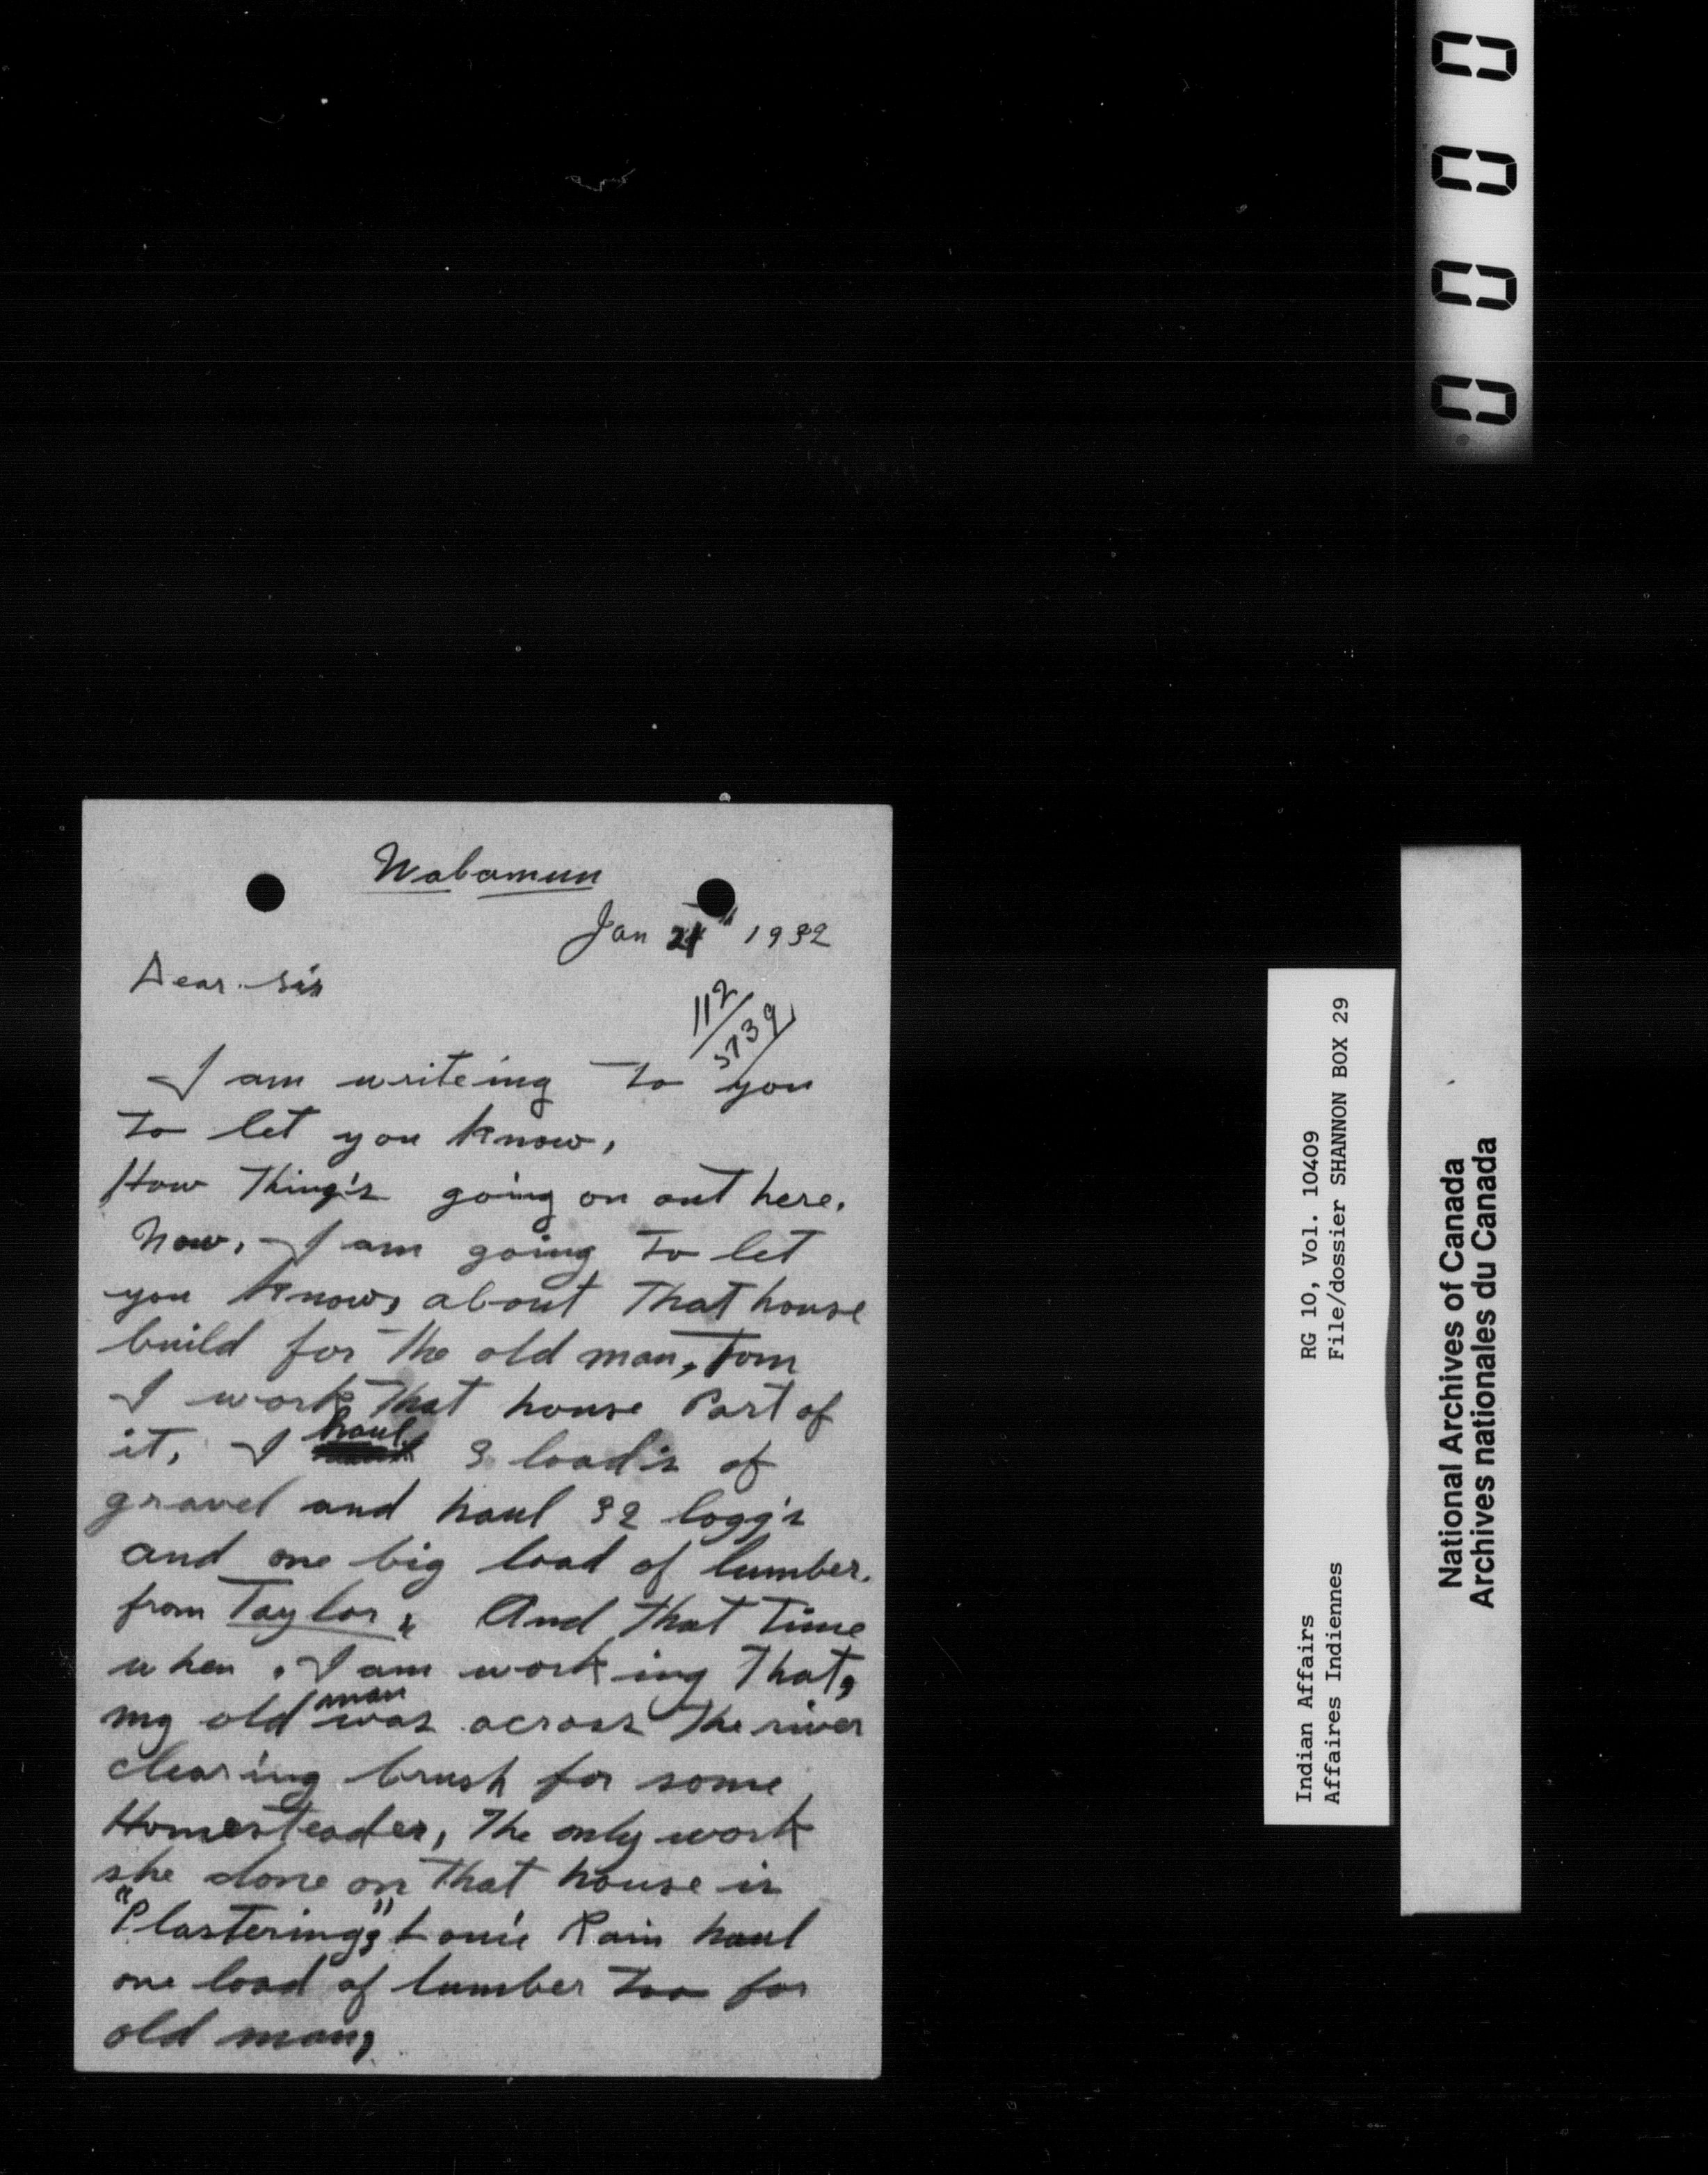 Wabamun
Jan 21" 1932
Dear sir
112/5739
I am writeing to you
to let you know,
How Thing's going on out here.
Now, I am going to let
you know, about That house
build for The old man, Tom
I work That house Part of
it, I haul 3 load's of
gravel and haul 32 logg's
and one big load of lumber.
from Taylor, And That Time
when, I am working That,
my old man was across The river
clearing brush for some
Homesteader, The only work
she done on That house is
"Plastering," Louie Rain haul
one load of lumber Too for
old man,
0000
Indian Affairs RG 10, Vol. 10409
Affaires Indiennes File/dossier SHANNON BOX 29
National Archives of Canada
Archives nationales du Canada